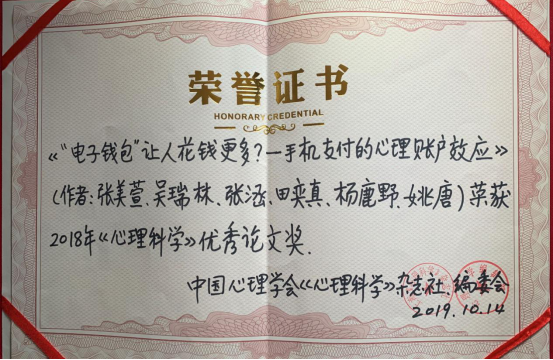 荣誉证书
HONORARY CREDENTIAL
《“电子钱包”让人花钱更多?—手机支付的心理账户效应》
(作者:张美萱、吴瑞林、张涵、田奕真、杨鹿野、姚唐)荣获
2018年《心理科学》优秀论文奖.
中国心理学会《心理科学》杂志社 编委会
2019.10.14